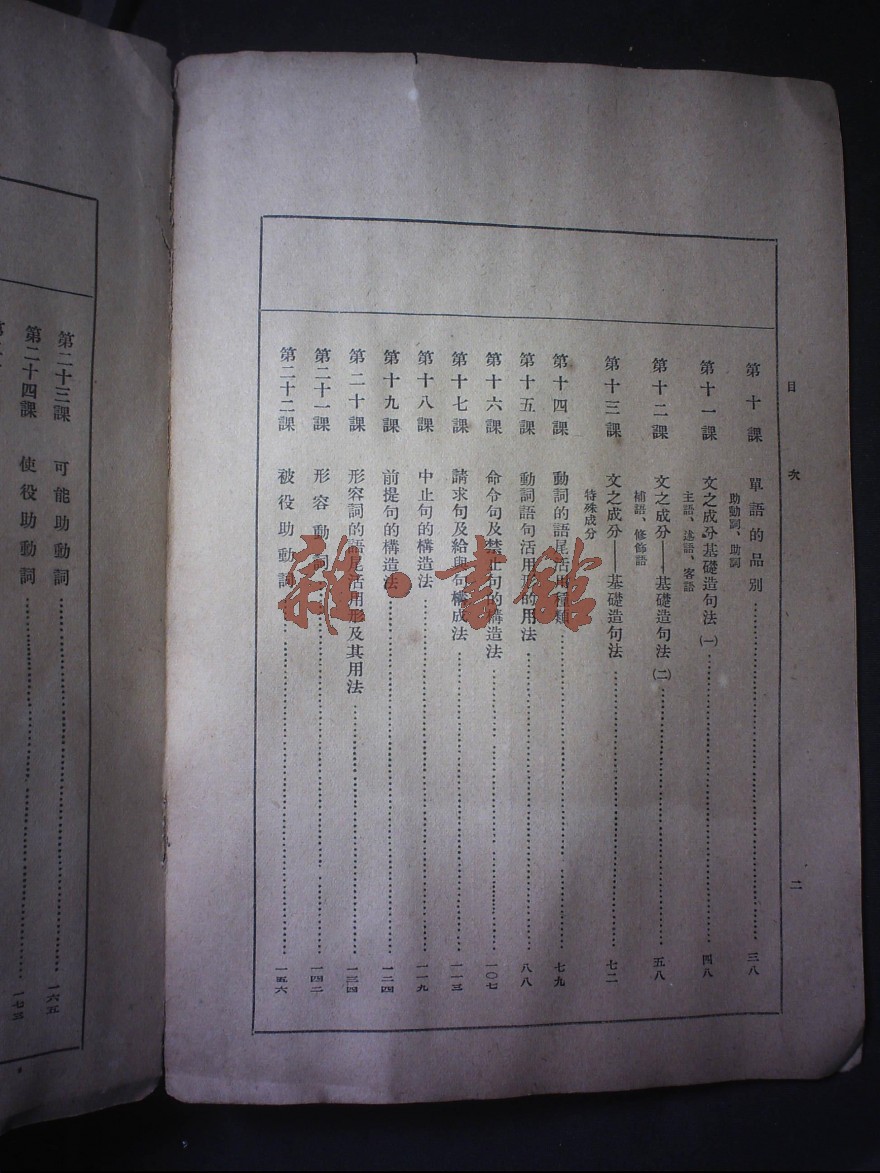 目次
二
第十課 單語的品別……三八
助動詞、助詞
第十一課 文之成分基礎造句法(一)……四八
主語、述語、客語
第十二課 文之成分——基礎造句法(二)……五八
補語、修飾語
第十三課 文之成分——基礎造句法……七二
特殊成分
第十四課 動詞的語尾活用種類……七九
第十五課 動詞語句活用形的用法……八八
第十六課 命令句及禁止句的構造法……一〇七
第十七課 請求句及給與句構成法……一一三
第十八課 中止句的構造法……一一九
第十九課 前提句的構造法……一二四
第二十課 形容詞的語尾活用形及其用法……一三四
第二十一課 形容動詞……一四二
第二十二課 被役助動詞……一五六
第二十三課 可能助動詞……一六五
第二十四課 使役助動詞……一七五
雜·書館